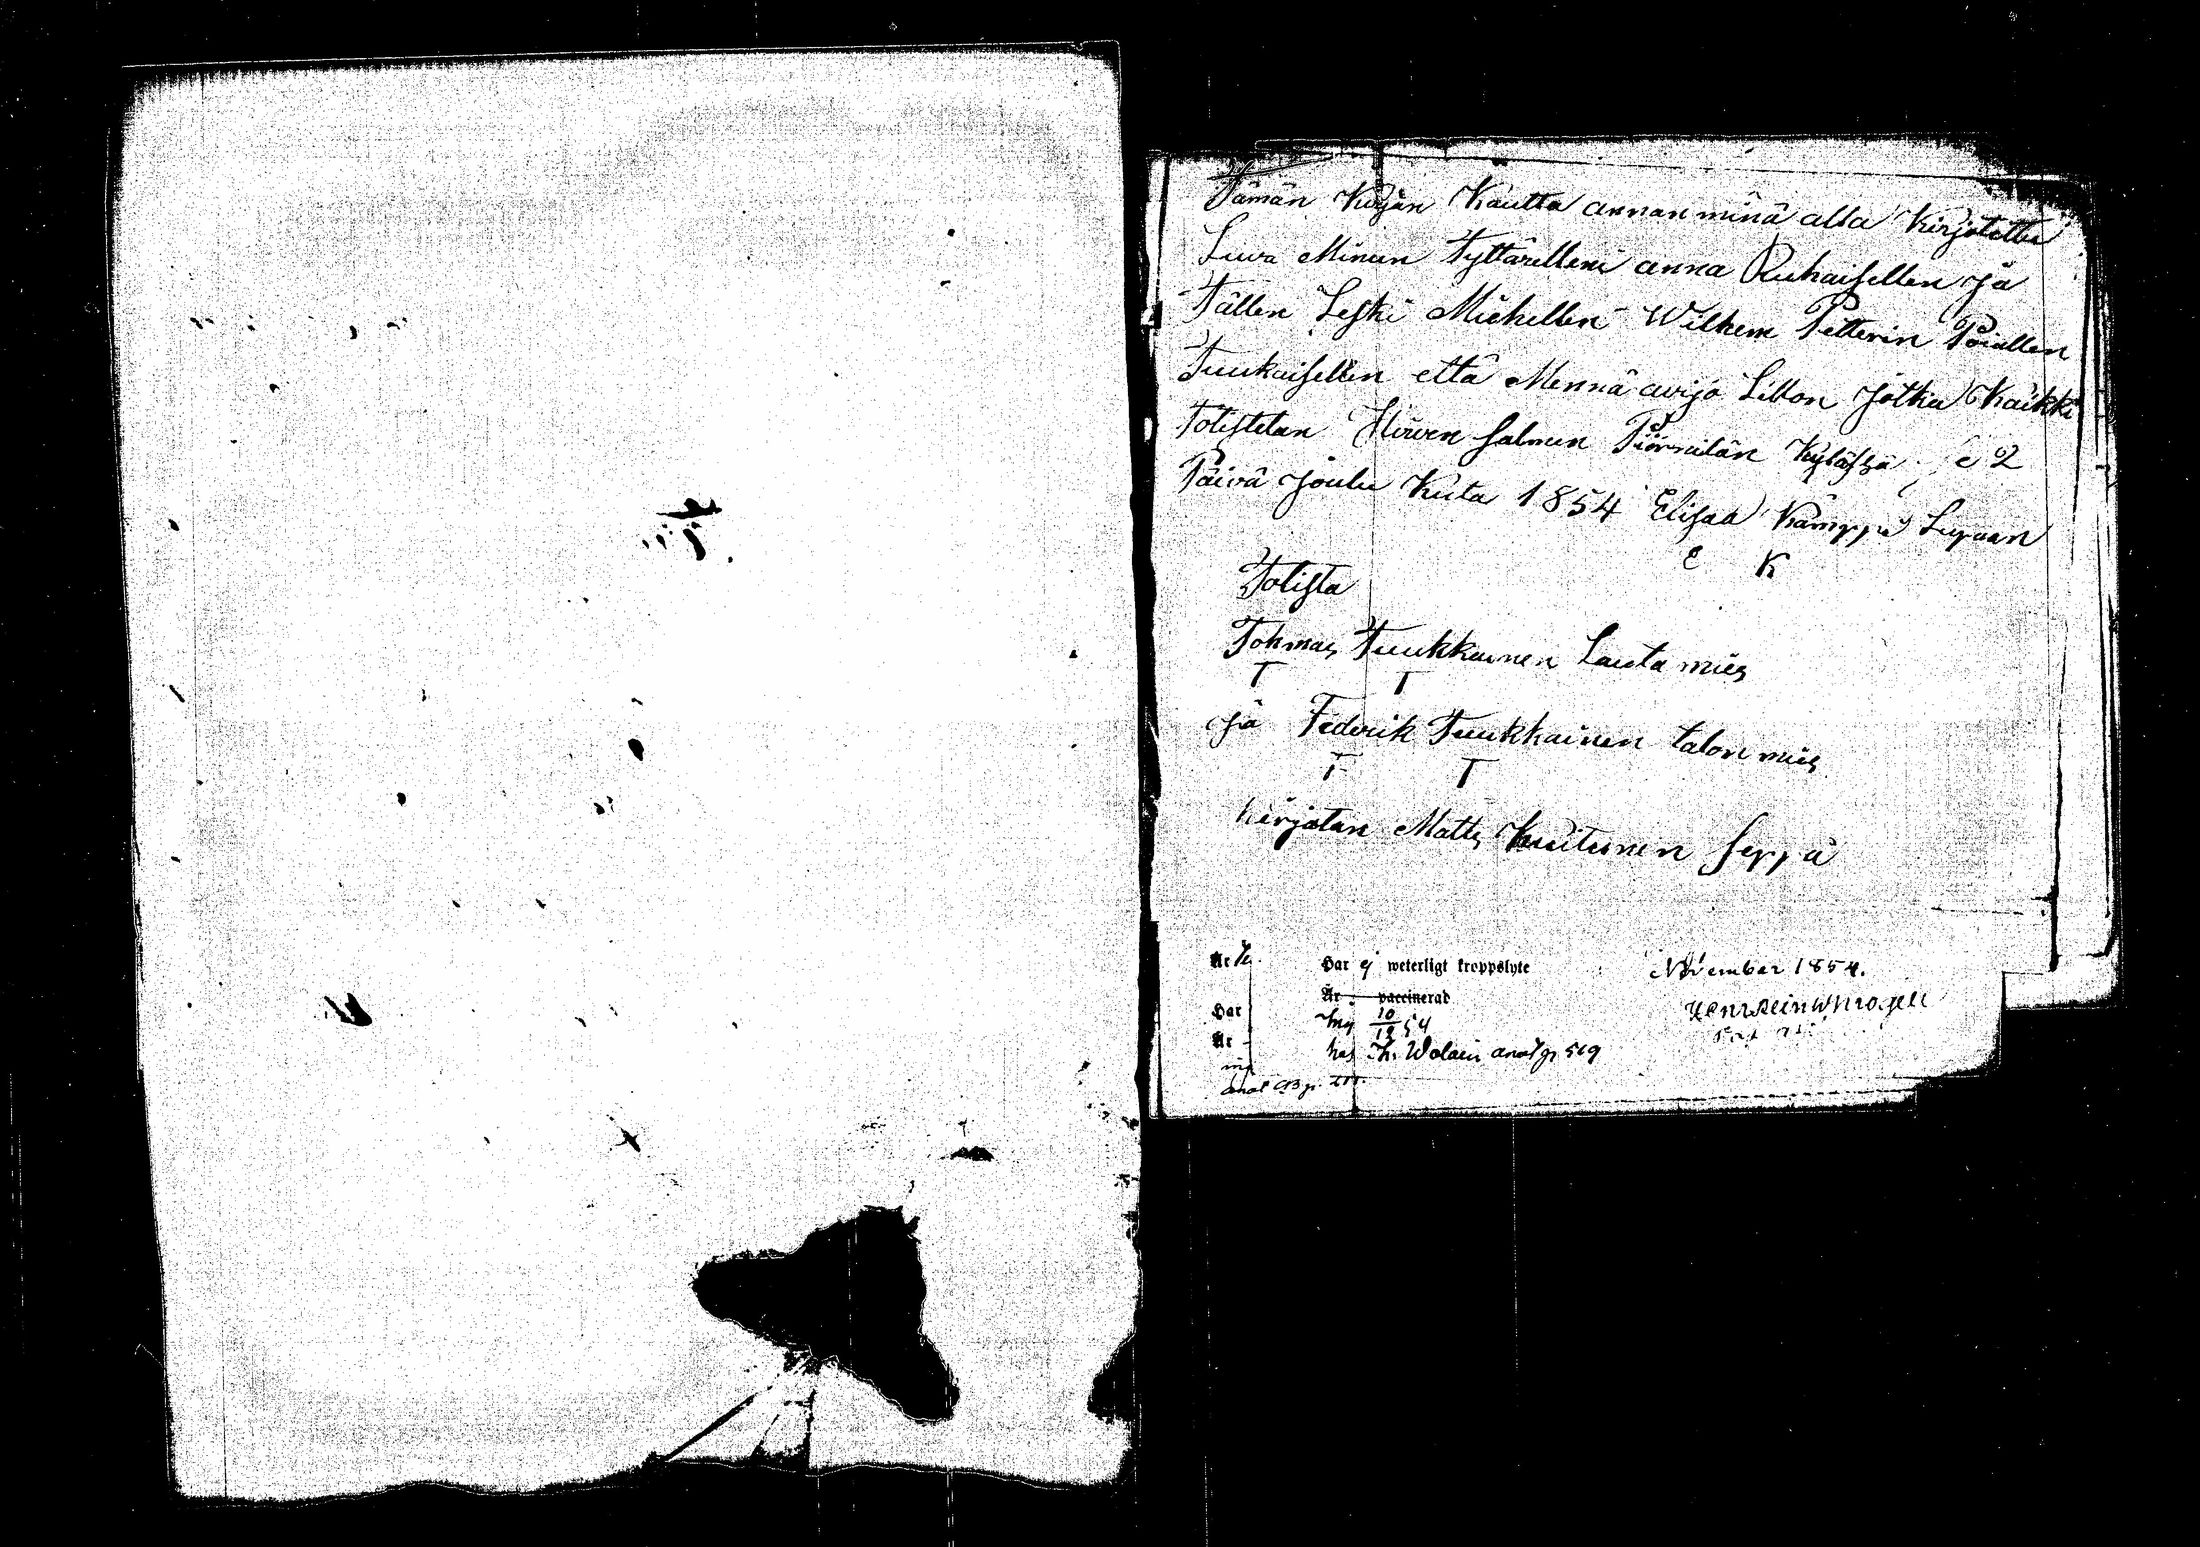 Tämän Kirjan Kautta annan minä alla Kirjotettu
Luwa Minun Tyttärelleni anna Ruhaisellen Ja
Tällen Leski Miehellen Wilhem Petterin Poiallen
Tuukaisellen että Mennä avijo Liiton Jotka Kaikki
Totistetan Hirwen salmen Piörnilän Kyläsä se 2
Päivä Joulu Kuta 1854 Elisaa Kämppi Lupaan
E K
Totista
Tohmas Tuukkainen Lauta mies
T T
Ja Federik Tuukkainen talon mies
F T
kirjotan Matts Kuitunen seppä
Är
Har ej weterligt kroppslyte
November 1854.
Är vaccinerad
Har
10/12 54
Är
hos Th. Wolain anat p. 519